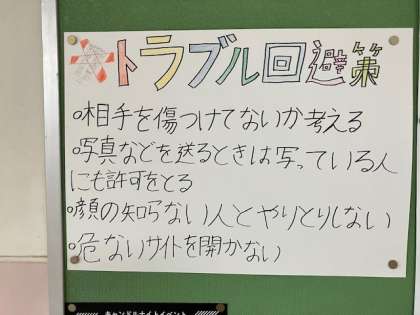 トラブル回避策
○相手を傷つけてないか考える
○写真などを送るときは写っている人
にも許可をとる
○顔の知らない人とやりとりしない
○危ないサイトを開かない
キャンドルナイトイベント